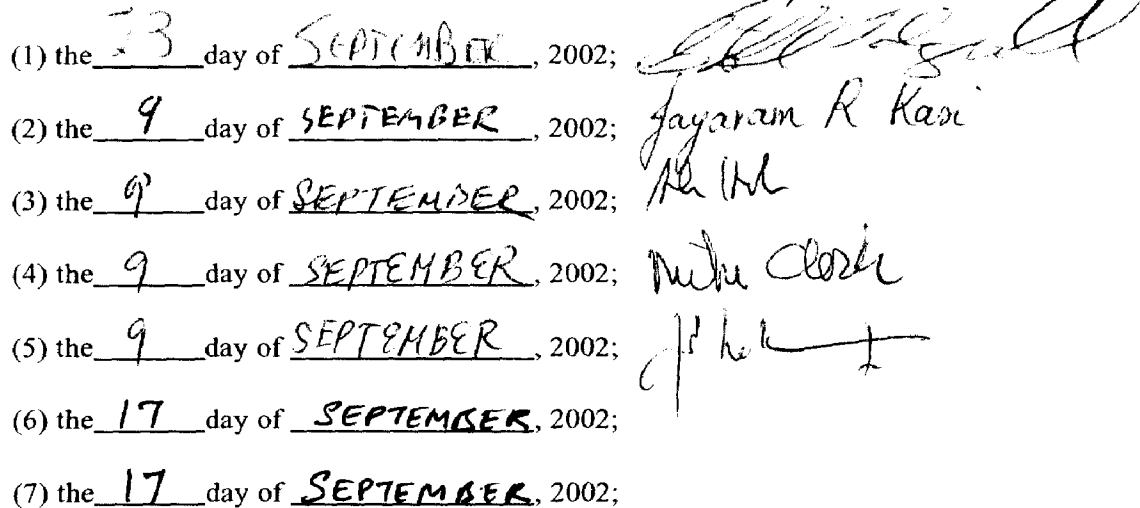 (1) the 23 day of SEPTEMBER, 2002;
(2) the 9 day of SEPTEMBER, 2002; Jayaram R Kasi
(3) the 9 day of SEPTEMBER, 2002;
(4) the 9 day of SEPTEMBER, 2002; Mike Clark
(5) the 9 day of SEPTEMBER, 2002;
(6) the 17 day of SEPTEMBER, 2002;
(7) the 17 day of SEPTEMBER, 2002;